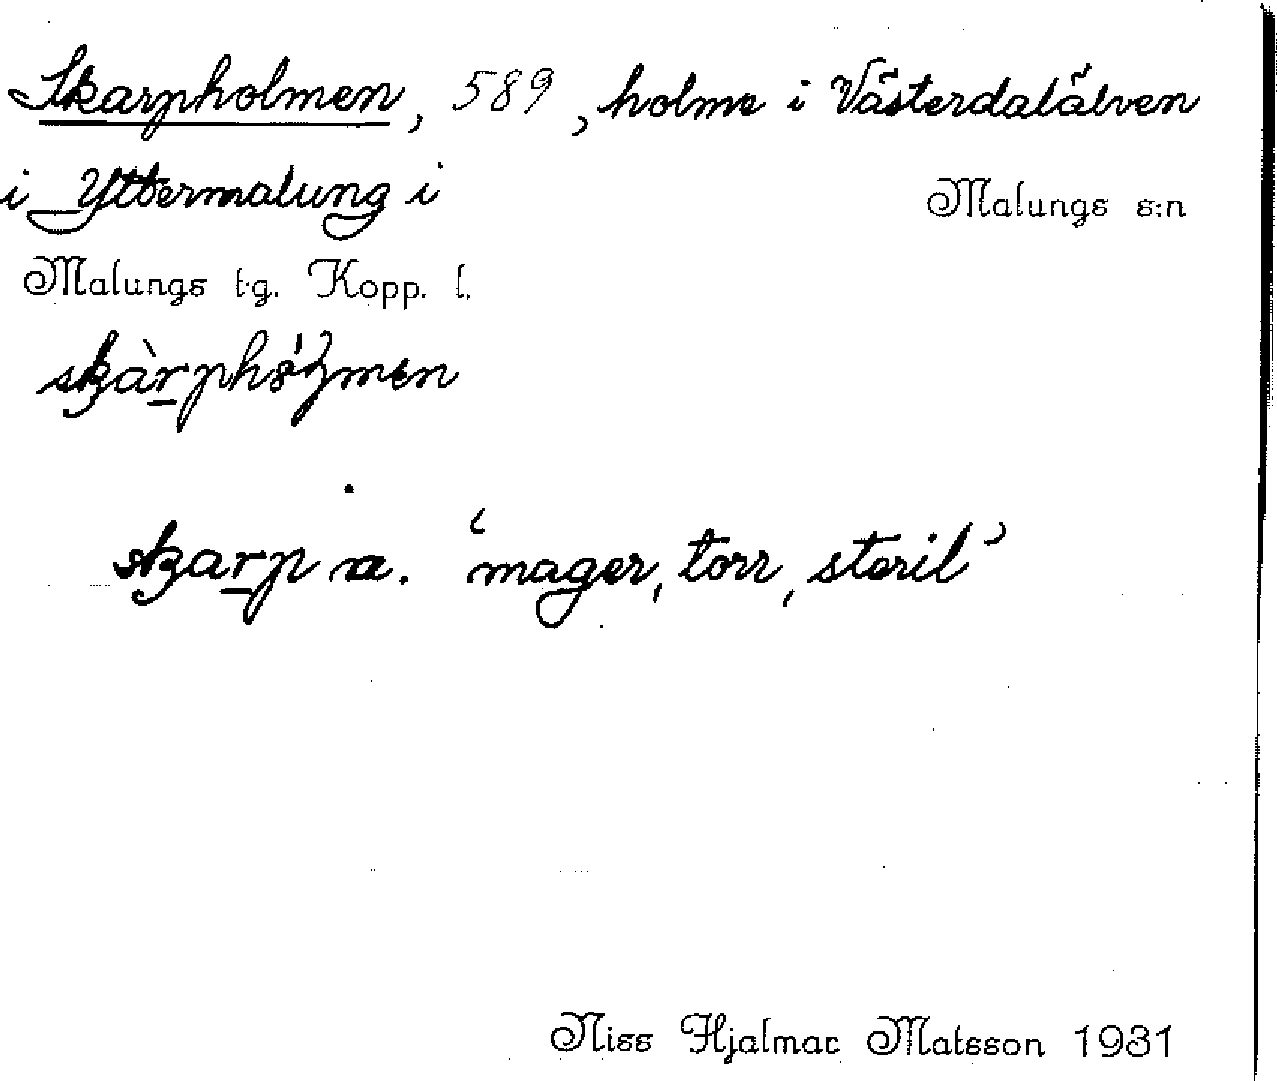 Skarpholmen, 589, holme i Västerdalälven
i Yttermalung i Malungs s:n
Malungs t.g. Kopp. l.
skarp a. ‘mager, torr, steril’
Niss Hjalmar Matsson 1931